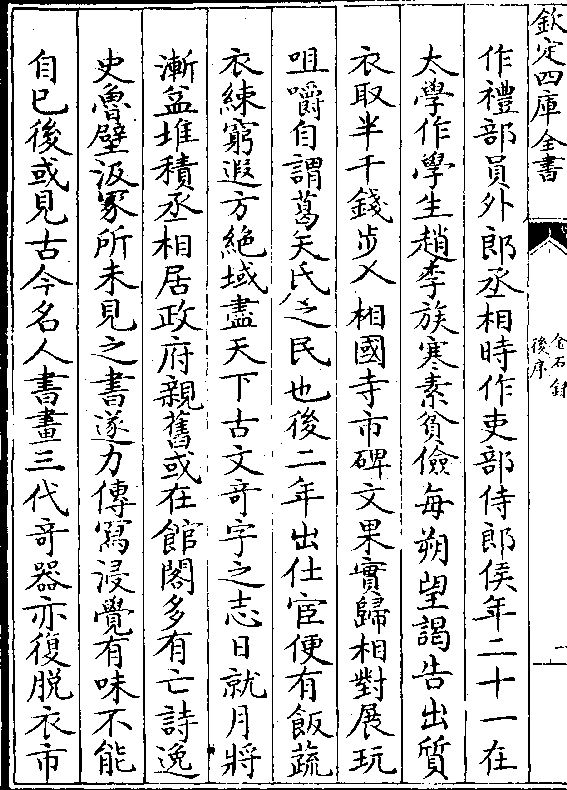 欽定四庫全書
金石錄
後序
作禮部員外郎丞相時作吏部侍郎侯年二十一在
太學作學生趙李族寒素貧儉每朔望謁告出質
衣取半千錢步入相國寺市碑文果實歸相對展玩
咀嚼自謂葛天氏之民也後二年出仕宦便有飯蔬
衣練窮遐方絶域盡天下古文竒字之志日就月將
漸益堆積丞相居政府親舊或在館閣多有亡詩逸
史魯壁汲冢所未見之書遂力傳寫浸覺有味不能
自已後或見古今名人書畫三代竒器亦復脱衣市